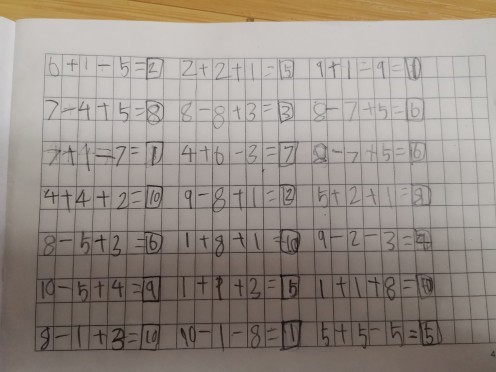 6+1-5=2 2+2+1=5 9+1=9=1
7-4+5=8 8-8+3=3 8-7+5=6
7+1=7=1 4+6-3=7 8-7+5=6
4+4+2=10 9-8+1=2 5+2+1=8
8-5+3=6 1+8+1=10 9-2-3=4
10-5+4=9 1+1+3=5 1+1+8=10
8-1+3=10 10-1-8=1 5+5-5=5